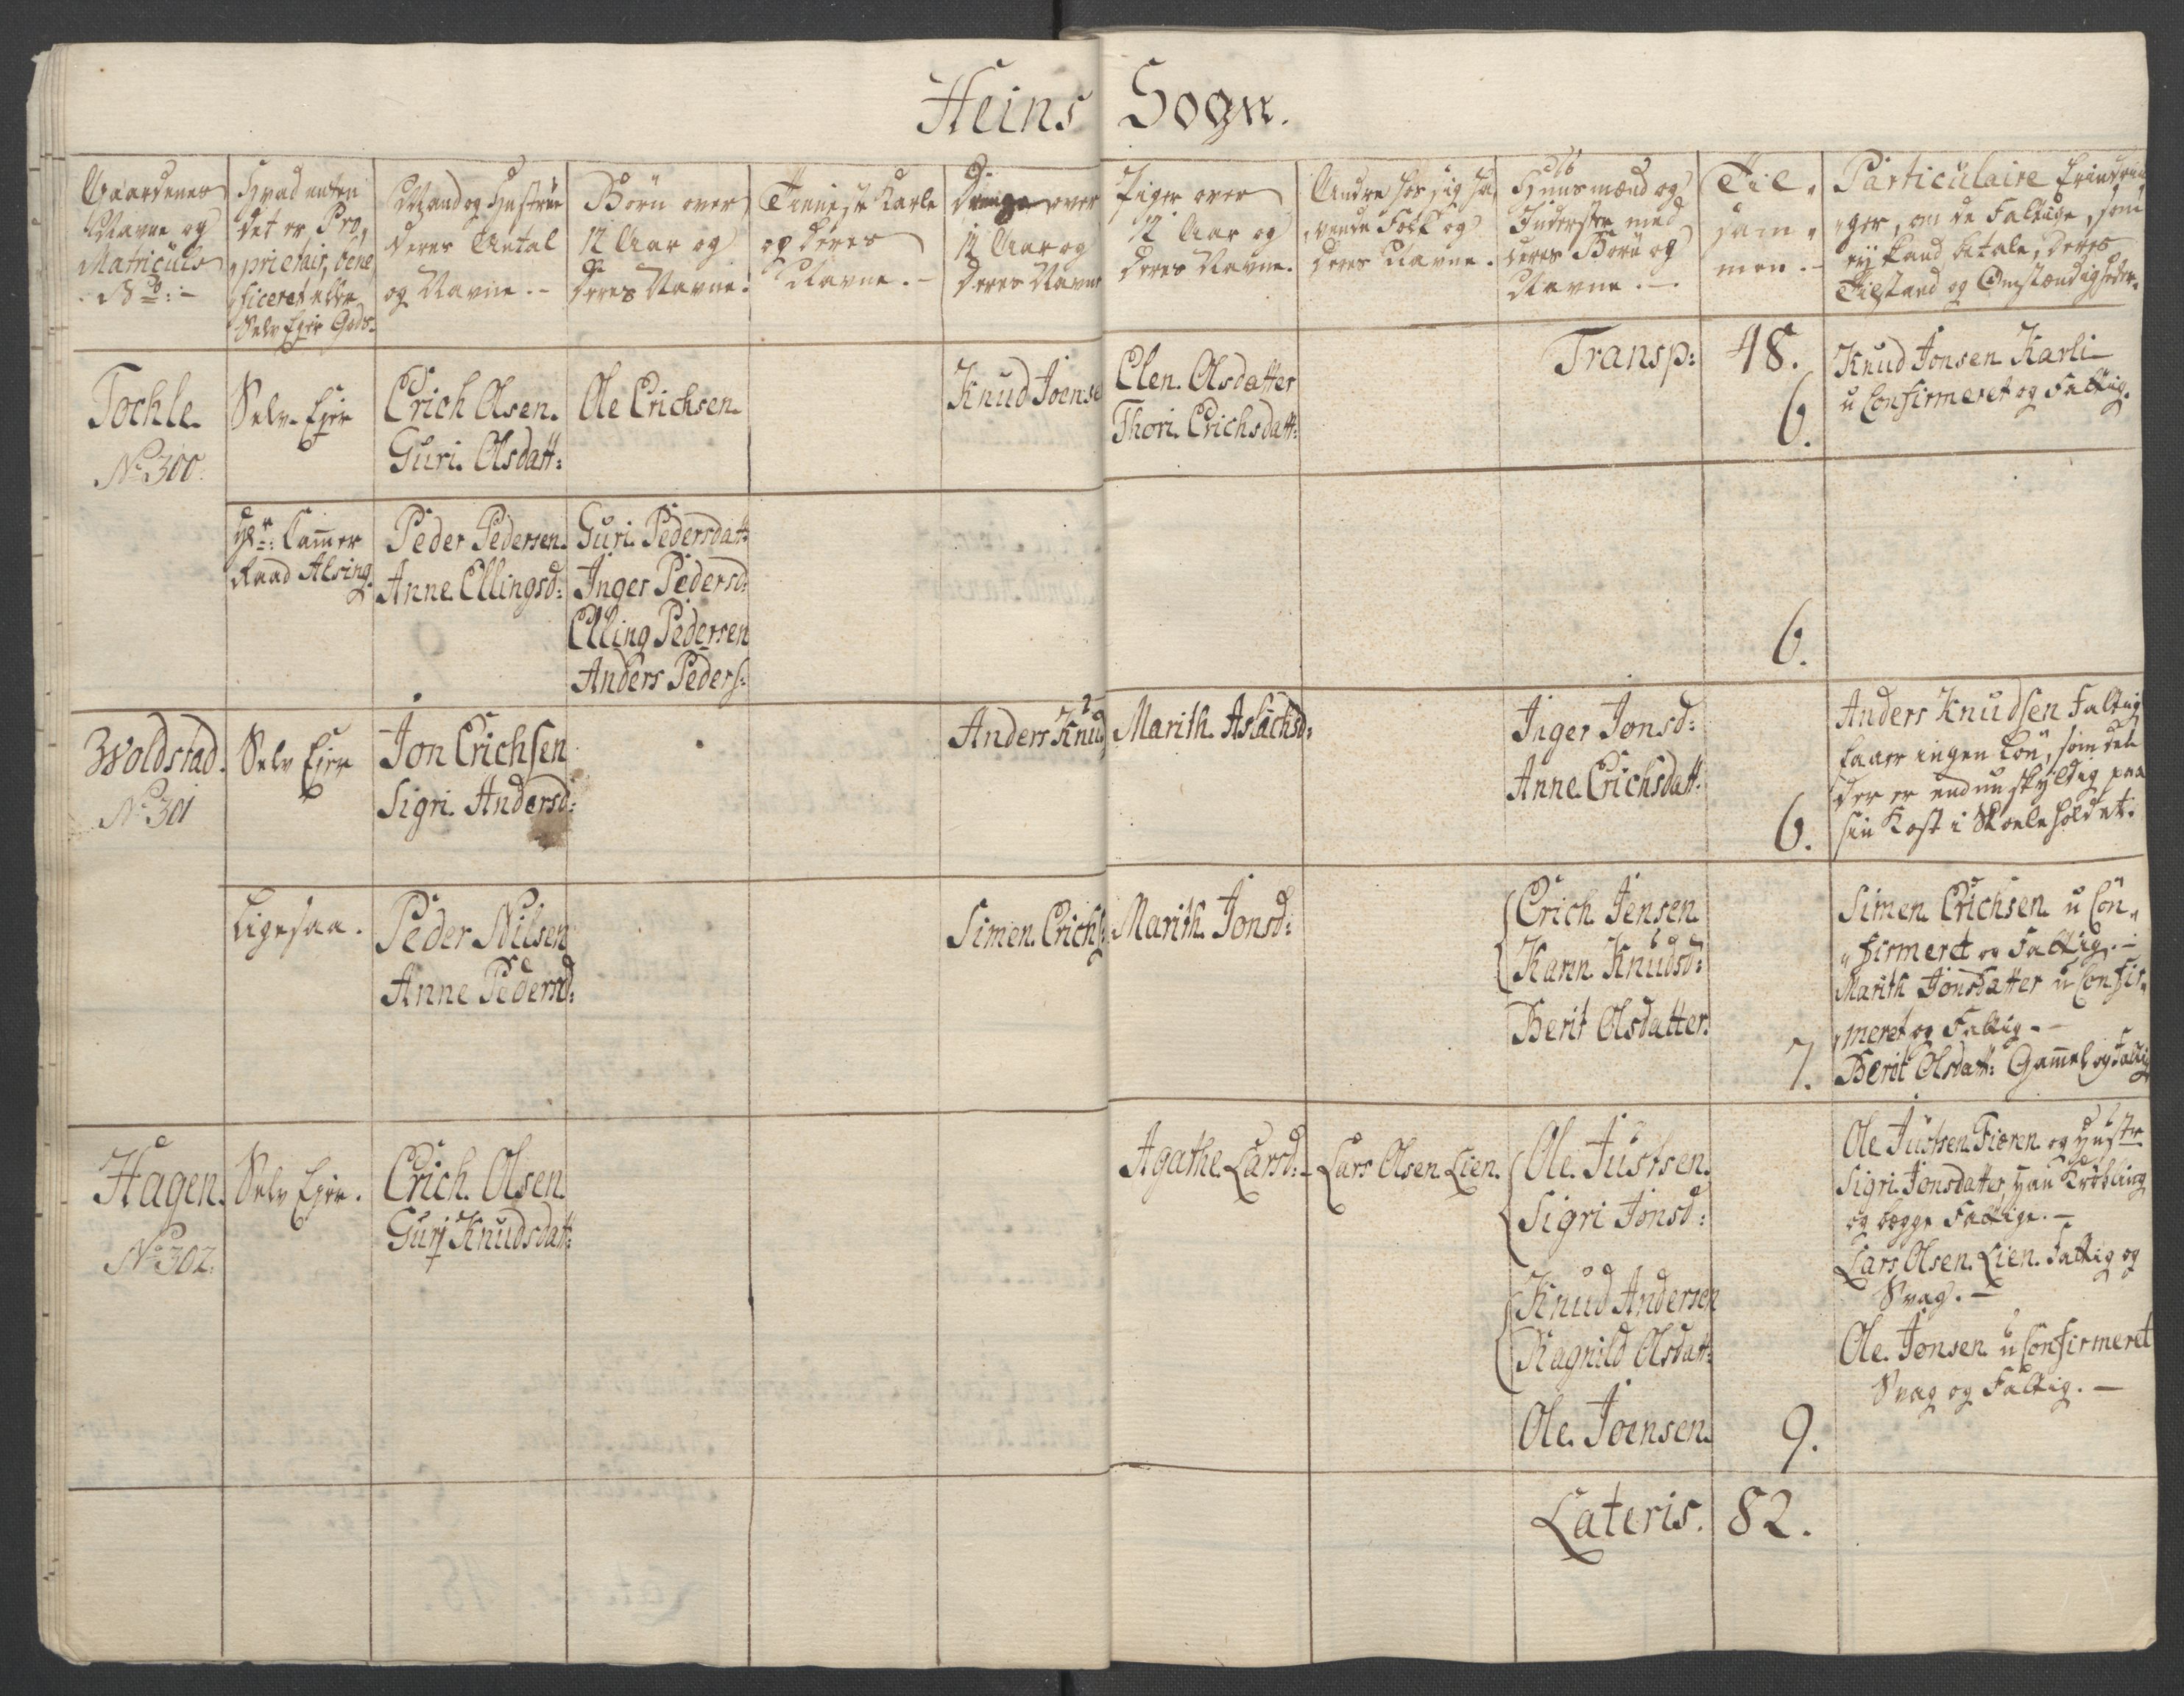 Heins Sogn.
Gaardenes Navne og Matriculs No: -
Hvad enten det er Proprietair, beneficeret eller Selv Ejer Gods.
Mand og Hustrue deres Antal og Navne. -
Børn over 12 Aar og deres Navne.
Tienneste Karle og deres Navne. -
Drenge over 12 Aar og deres Navne
Piger over 12 Aar og deres Navne.
Andre hos sig havende Folk og deres Navne.
Huusmænd og Inderster med deres Børn og Navne. -
Tilsammen. -
Particulaire Erindringer, om de Fattige, som ej kand betale, deres Tilstand og Omstændigheder.
Transp: 48.
Tochle No 300.
Selv-Ejer
Erich Olsen.
Guri Olsdatt:
Ole Erichsen.
Knud Joense
Elen Olsdatter
Thori Erichsdatt:
6.
Knud Jonsen Karli
u Confirmeret og Fattig.
Hr: Cammer
Raad Alsing.
Peder Pedersen.
Anne Ellingsd:
Guri Pedersdatt:
Inger Pedersd:
Elling Pedersen
Anders Peders:
6.
Woldstad.
No 301
Selv Ejer
Jon Erichsen
Sigri Andersd:
Anders Knud
Marith Aslachsd:
Inger Jonsd:
Anne Erichsdatt:
6.
Anders Knudsen Fattig
faaer ingen Løn, som
der er endnu skyldig paa
sin Kost i Skoleholdet.
Ligesaa.
Peder Nilsen
Anne Pedersd:
Simen Erichs:
Marith Jonsd:
Erich Jensen
Karin Knudsd:
Berit Olsdatter.
7.
Simen Erichsen u Con„
„firmeret og Fattig. -
Marith Jonsdatter u Confir„
„meret og Fattig - -
Berit Olsdatt: Gammel og Fattig
Hagen.
No 302.
Selv Ejer.
Erich Olsen
Guri Knudsdatt:
Agathe Larsd: -
Lars Olsen Lien.
Ole Justsen.
Sigri Jonsd:
Knud Andersen
Ragnild Olsdatt:
Ole Joensen.
9.
Ole Justsen Fieren og Hustr
Sigri Jonsdatter, han Krøbling
og begge Fattige. -
Lars Olsen Lien Fattig og
Svag. -
Ole Jonsen u Confirmeret
Svag og Fattig. -
Lateris. 82.